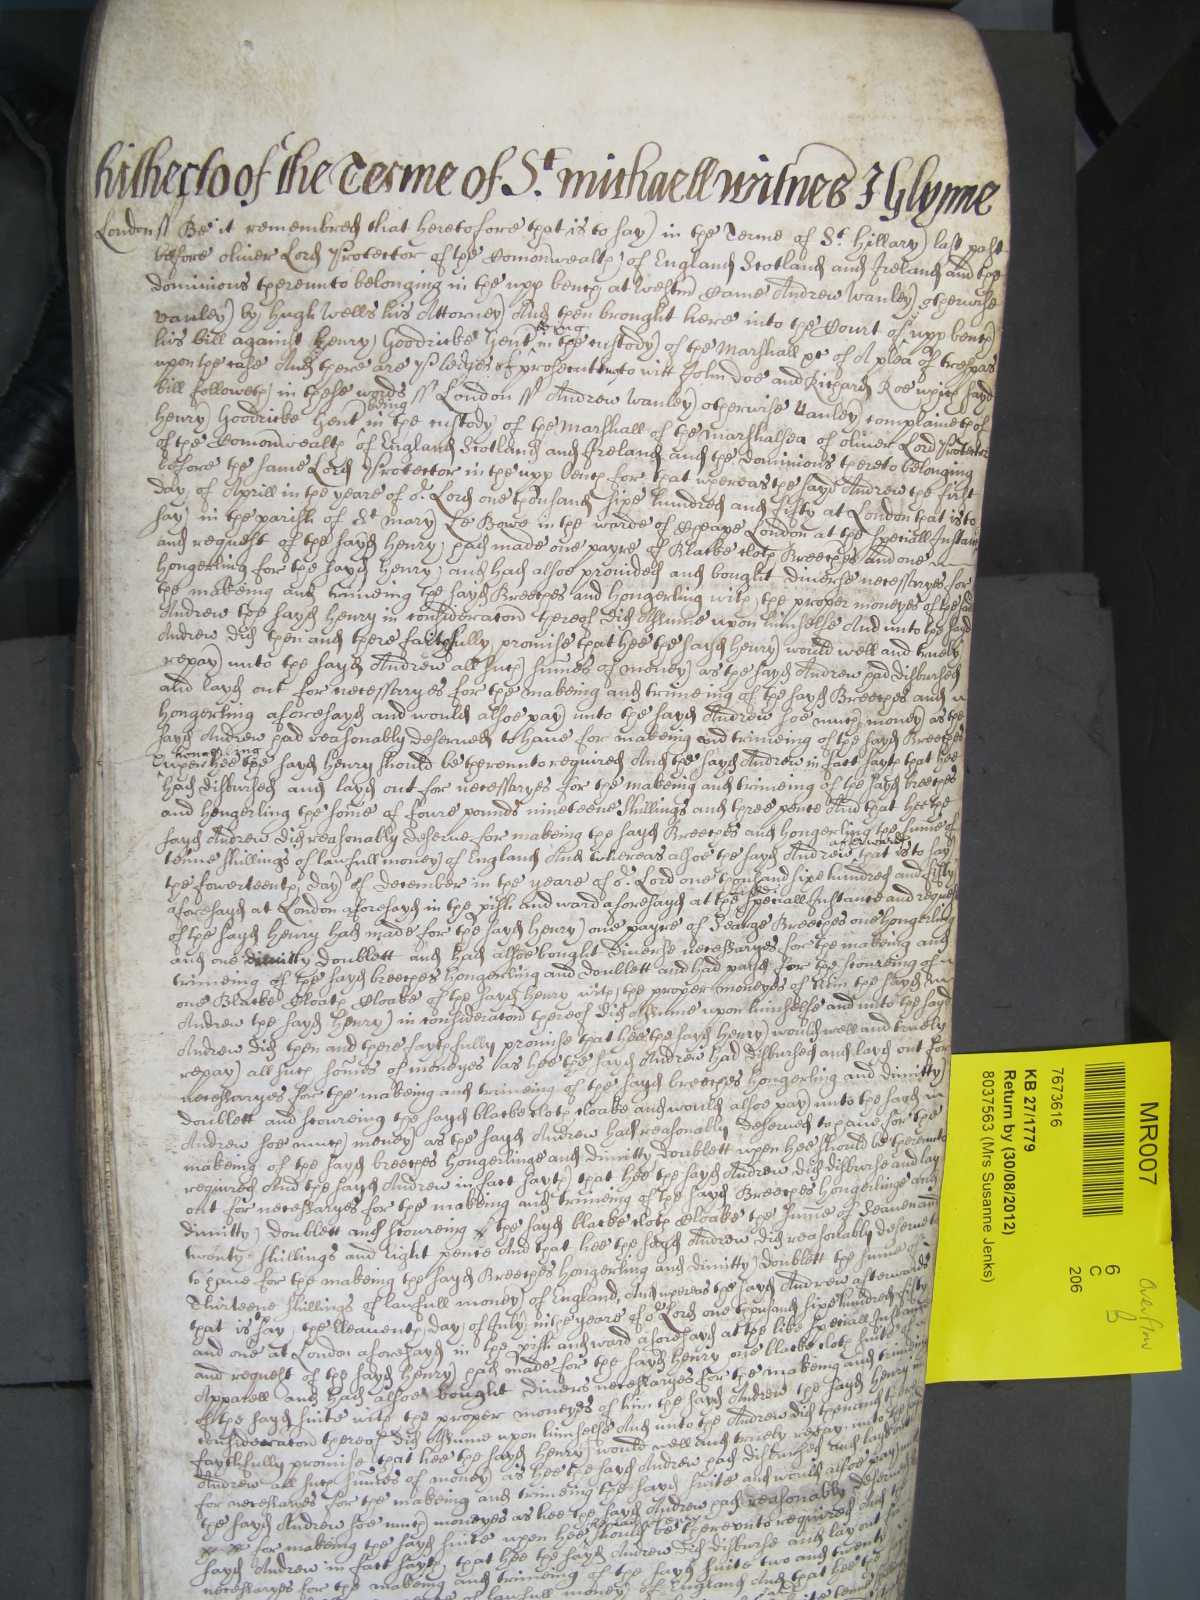 hitherto of the Terme of St. michaell witnes J Glynne
London ss Be it remembred that heretofore that is to say) in the Terme of St. Hillary) last past
before oliver Lord Protector of the Comonwealth of England Scotland and Ireland and the
dominions thereunto belonging in the upp bench at Westm came Andrew Wanley) otherwise
vanley) by Hugh Wells his Attorney) And then brought here into the Court of upp bench
his bill against Henry Goodricke Gent being in the custody) of the Marshall &c of A plea of trespas
upon the case And there are pledges of prosecuting to witt John Doe and Richard Roe which sayd
bill followeth in these words ss London ss Andrew Wanley) otherwise Vanley) complaineth of
Henry Goodricke Gent being in the custody of the Marshall of the Marshalsea of oliver Lord Protector
of the Comonwealth of England Scotland and Ireland and the dominions thereto belonging
before the same Lord Protector in the upp bench for that whereas the sayd Andrew the first
day of Aprill in the yeare of or. Lord one thousand sixe hundred and fifty at London that is to
say) in the parish of St Mary) Le Bowe in the warde of Cheape London at the speciall Instance
and request of the sayd Henry) had made one payre of Blacke cloth Breeches and one
Hongerling for the sayd Henry) and had alsoe provided and bought diverse necessaryes for
the makeing and trimeing the sayd Breeches and hongerling with the proper moneyes of the sayd
Andrew the sayd Henry in consideracon thereof did Assume upon himselfe And unto the sayd
Andrew did then and there faithfully promise that hee the sayd Henry) would well and truely
repay) unto the sayd Andrew all such sumes of money) as the sayd Andrew had disbursed
and layd out for necessaryes for the makeing and trimeing of the sayd Breeches and
hongerling aforesayd and would alsoe pay) unto the sayd Andrew soe much money) as the
sayd Andrew had reasonably deserved to have for makeing and trimeing of the sayd Breeches
hongerling
when hee the sayd Henry should be thereunto required And the sayd Andrew in fact sayth that hee
had disbursed and layd out for necessaryes for the makeing and trimeing of the sayd breeches
and hongerling the some of foure pounds nineteene shillings and three pence And that hee the
sayd Andrew did reasonably deserve for makeing the sayd Breeches and hongerling the sume of
tenne shillings of lawfull money) of England And whereas alsoe the sayd Andrew afterwards that is to say
the fowerteenth day) of December in the yeare of or. Lord one thousand sixe hundred and fifty
aforesayd at London aforesayd in the pish and ward aforesayd at the like speciall Instance and request
of the sayd Henry had made for the sayd Henry) one payre of Searge Breeches one hongerling
and one dimitty doublett and had alsoe bought diverse necessaryes for the makeing and
trimeing of the sayd breeches hongerling and doublett and had payd for the scoureing of
one Blacke Cloath Cloake of the sayd Henry with the proper moneyes of him the sayd
Andrew the sayd Henry) in consideracon thereof did Assume upon himselfe and unto the sayd
Andrew did then and there faythfully promise that hee the sayd Henry) would well and truely
repay) all such somes of moneyes as hee the sayd Andrew had disbursed and layd out for
necessaryes for the makeing and trimeing of the sayd breeches hongerling and dimitty
doublett and scoureing the sayd blacke cloth cloake and would alsoe pay) unto the sayd
Andrew soe much money) as the sayd Andrew had reasonably deserved to have for the
makeing of the sayd breeches hongerlinge and dimitty doublett when hee should be thereunto
required And the sayd Andrew in fact sayth) that hee the sayd Andrew did disburse and lay
out for necessaryes for the makeing and trimeing of the sayd Breeches hongerlinge and
dimitty) doublett and scoureing of the sayd blacke cloth Cloake the sume of Seaven and
twenty shillings and eight pence And that hee the sayd Andrew did reasonably deserve
to have for the makeing the sayd Breeches hongerling and dimitty) doublett the sume of
Thirteene shillings of lawfull money) of England, And whereas the sayd Andrew afterwards
that is say the Eleaventh day of July in the yeare of or. Lord one thousand sixe hundred fifty
and one at London aforesayd in the pish and ward aforesayd at the like speciall Instance
and request of the sayd Henry) had made for the sayd Henry one blacke cloth suite of
Apparell and had alsoe bought divers necessaryes for the makeing and trimeing
of the sayd suite with the proper moneyes of him the sayd Andrew the sayd Henry in
consideracon thereof did Assume upon himselfe And unto the Andrew did then and there
faythfully promise that hee the sayd Henry) would well and truely repay unto the sayd
Andrew all such sumes of money as hee the sayd Andrew had disbursed and layd out
for necessaryes for the makeing and trimeing the sayd suite and would alsoe pay unto
the sayd Andrew soe much moneyes as hee the sayd Andrew had reasonably deserved
for makeing the sayd suite when hee should be thereunto required And the
sayd Andrew in fact sayth that hee the sayd Andrew did disburse and lay out for
necessaryes for the makeing and trimeing of the sayd suite two and twenty
of lawfull money) of England And that hee the sayd
MR007
7673616
KB 27/1779
Return by (30/08/2012)
8037563 (Mrs Susanne Jenks)
6
C
206
Overflow